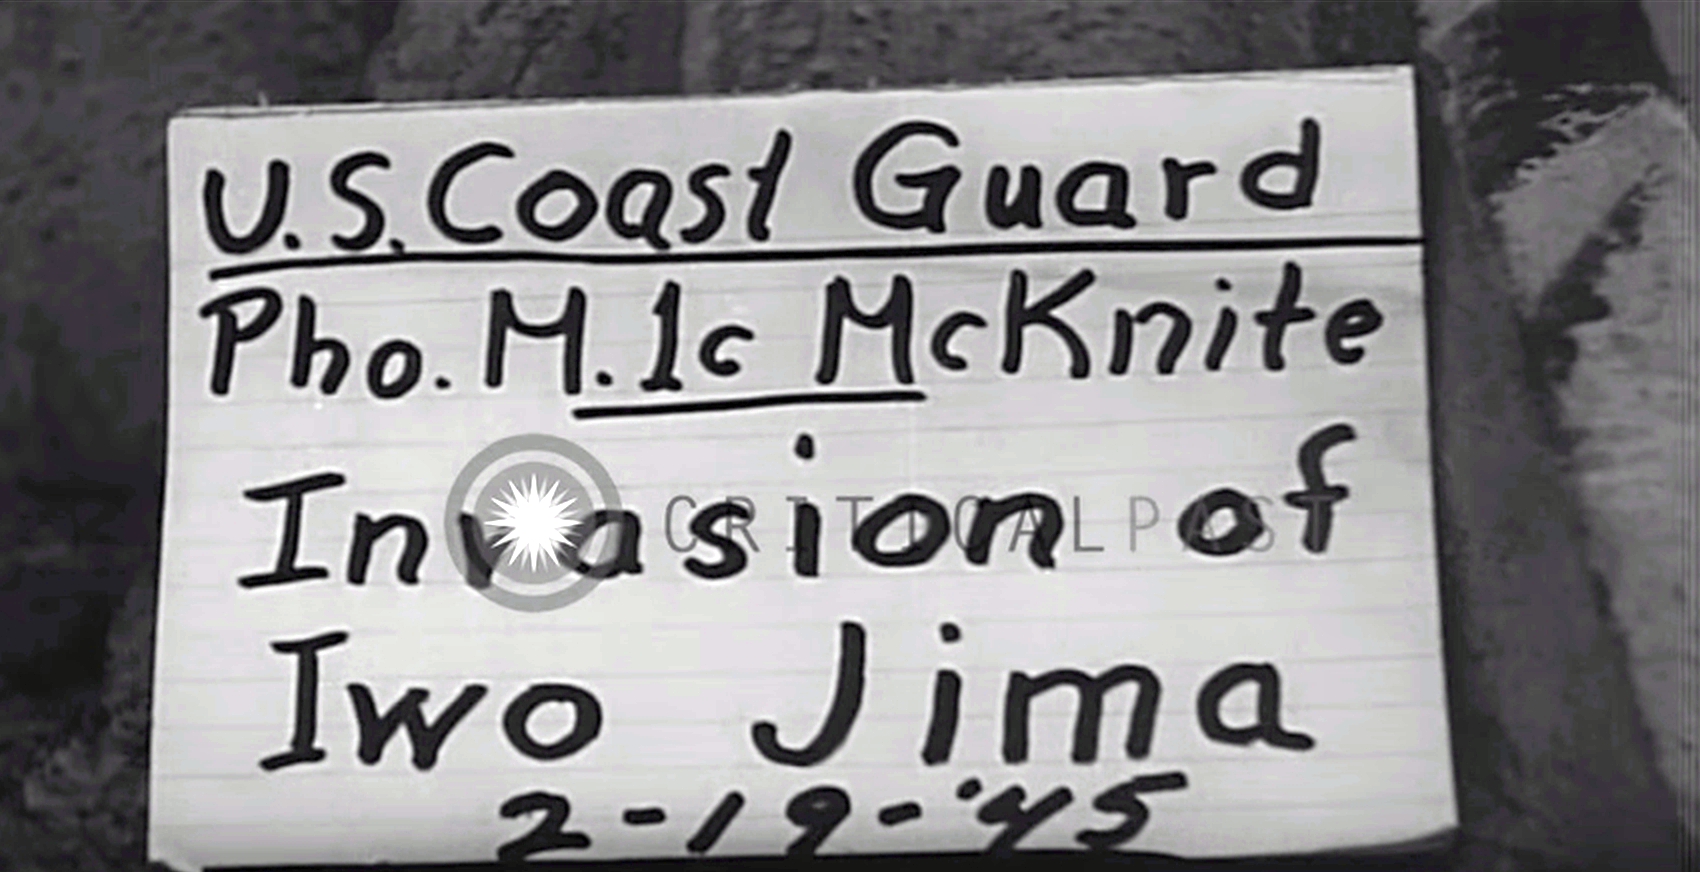 U.S. Coast Guard
Pho. M.1c McKnite
Invasion of
CRITICALPAST
Iwo Jima
2-19-'45